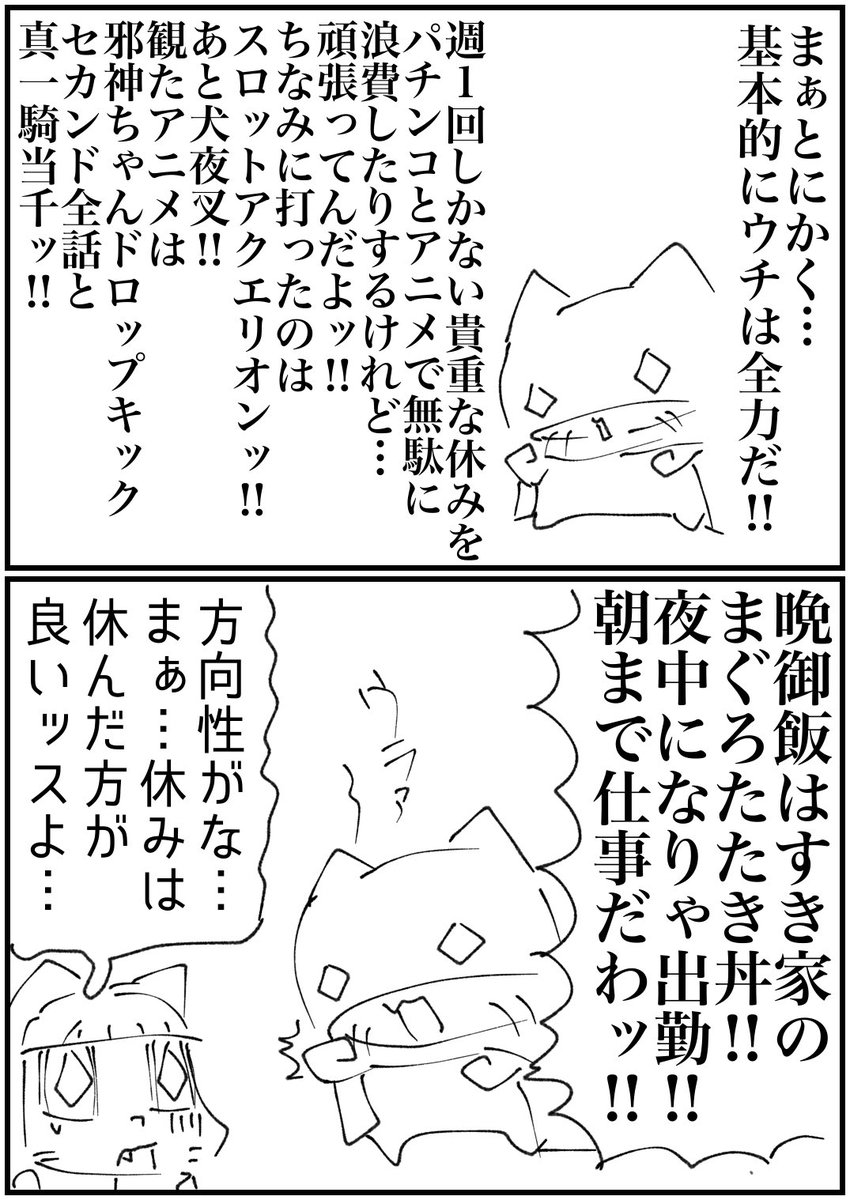 まぁとにかく…
基本的にウチは全力だ!!
週１回しかない貴重な休みを
パチンコとアニメで無駄に
浪費したりするけれど…
頑張ってんだよッ!!
ちなみに打ったのは
スロットアクエリオンッ!!
あと犬夜叉!!
観たアニメは
邪神ちゃんドロップキック
セカンド全話と
真一騎当千ッ!!
晩御飯はすき家の
まぐろたたき丼!!
夜中になりゃ出勤!!
朝まで仕事だわッ!!
ウラァ
方向性がな…
まぁ…休みは
休んだ方が
良いッスよ…